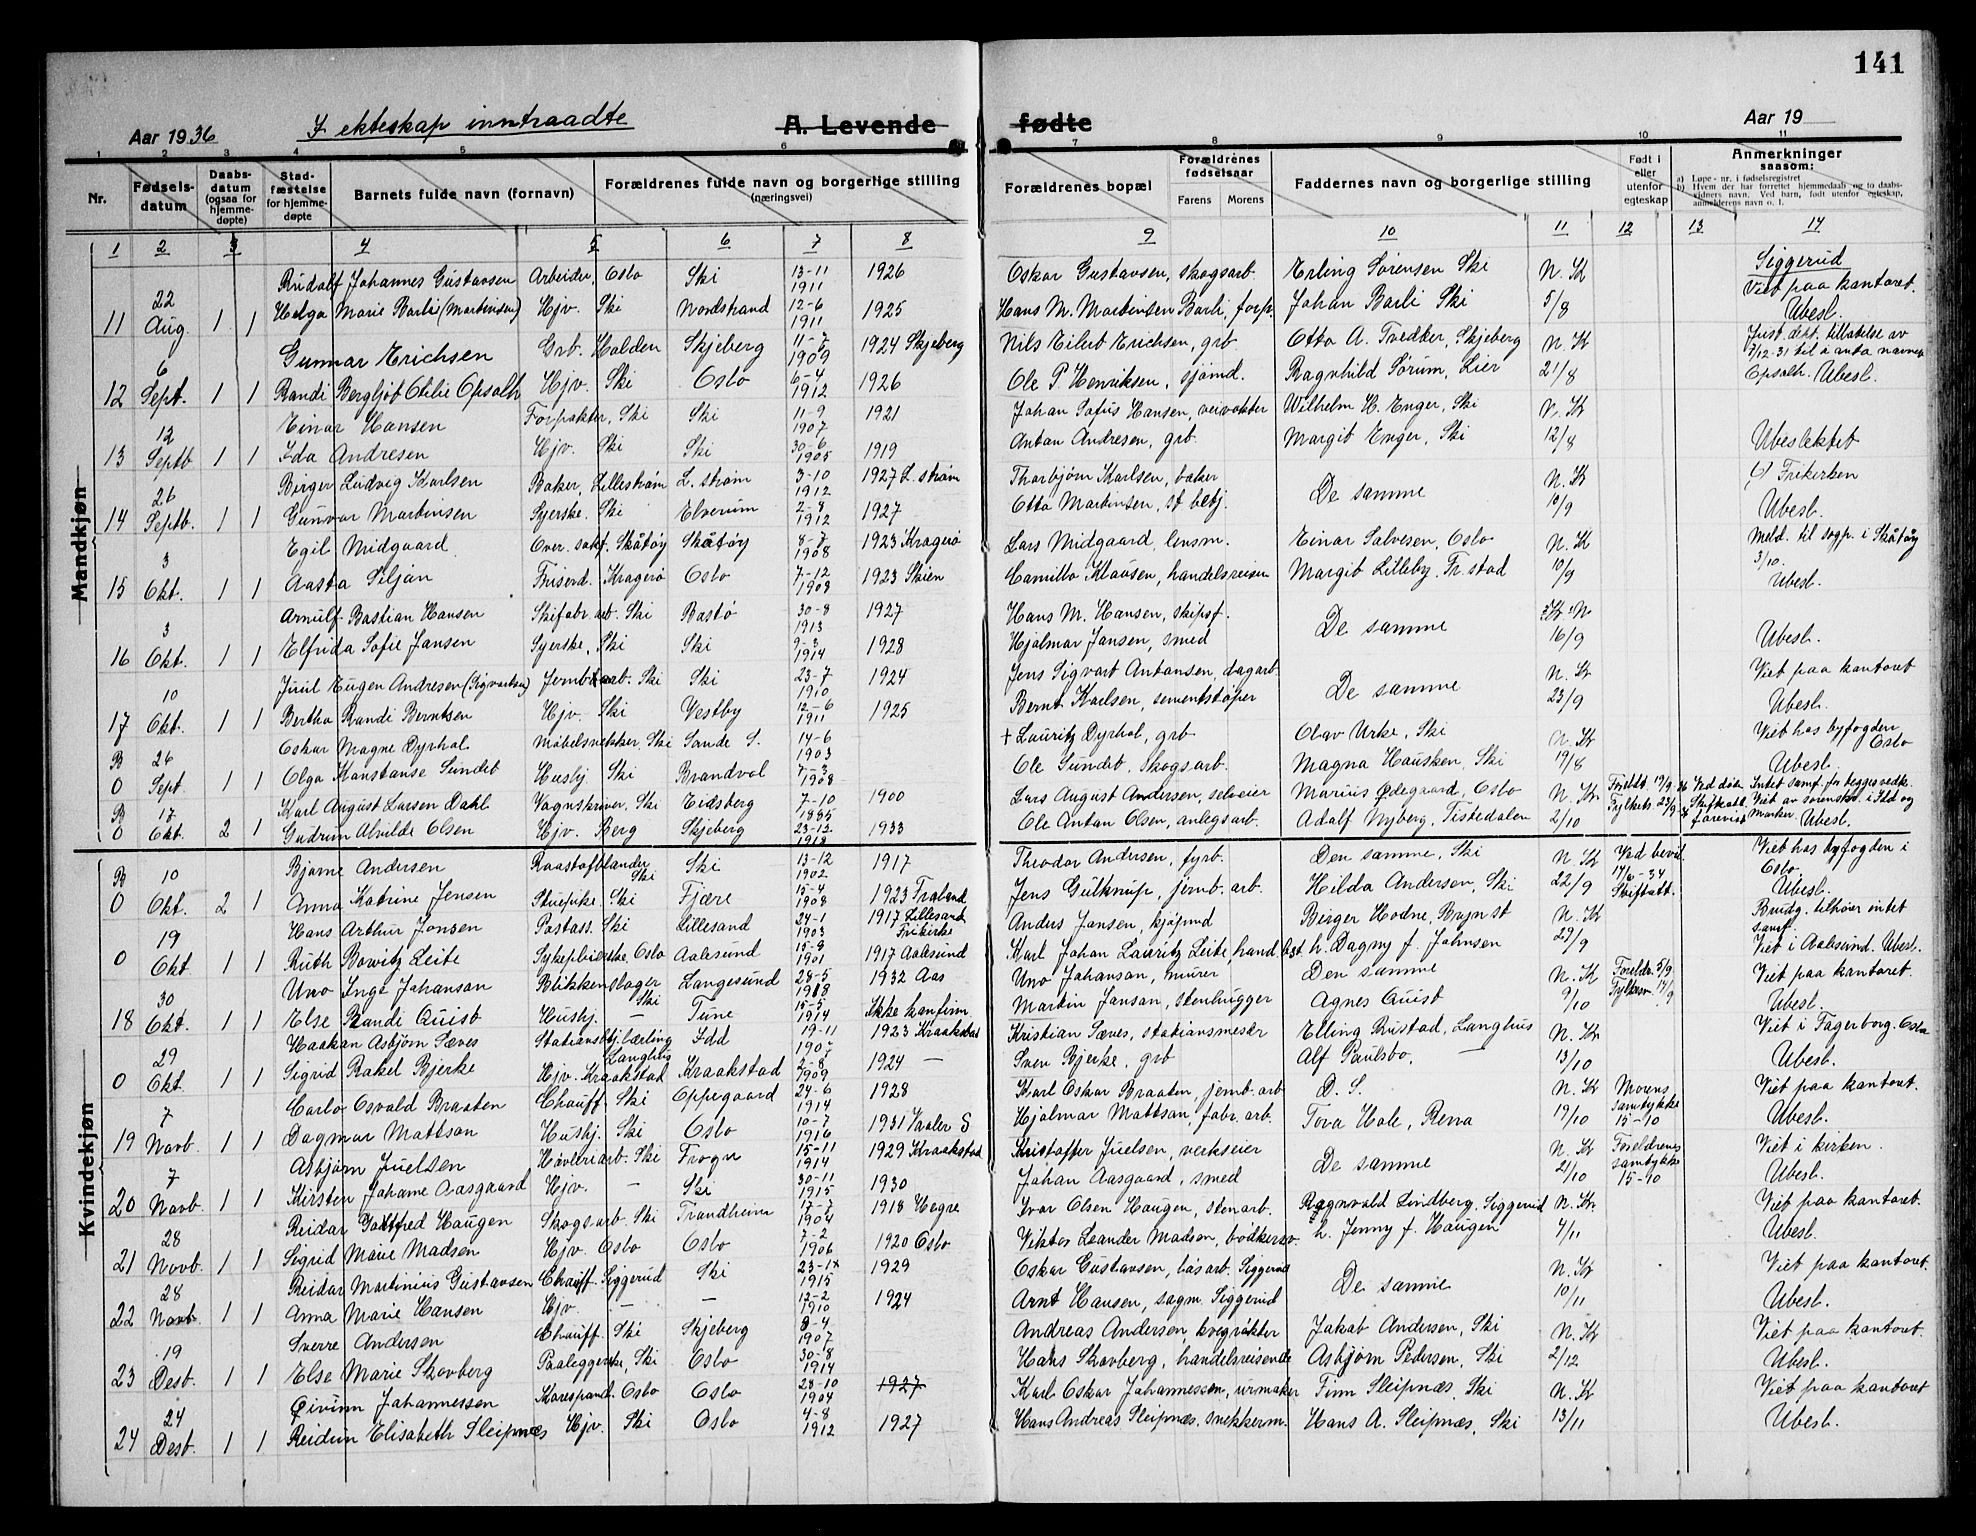 141
Aar 1936 I ekteskap inntraadte A. Levende fødte Aar 19
1 2 3 4 5 6 7 8 9 10 11
Nr. Fødselsdatum Daabsdatum (ogsaa for hjemmedøpte) Stadfæstelse for hjemmedøpte Barnets fulde navn (fornavn) Forældrenes fulde navn og borgerlige stilling (næringsvei) Forældrenes bopæl Forældrenes fødselsaar Farens Morens Faddernes navn og borgerlige stilling Født i eller utenfor egteskap Anmerkninger saasom:
a) Løpe-nr. i fødselsregistret
b) Hvem der har forrettet hjemmedaab og to daabsvidners navn. Ved barn, født utenfor egteskap, anmelderens navn o. l.
1 2 3 4 5 6 7 8 9 10 11 12 13 14
Mandkjøn
Rudolf Johannes Gustavsen Arbeider, Oslo Ski 13-11 1911 1926 Oskar Gustavsen, skogsarb. Erling Sørensen Ski N. Kr Siggerud Viet paa kantoret.
11 22 Aug. 1 1 Helga Marie Barli (Martinsen) Hjv. Ski Nordstrand 12-6 1911 1925 Hans M. Martinsen Barli, forp. Johan Barli Ski 5/8 Ubesl.
Gunnar Erichsen Grb. Halden Skjeberg 11-7 1909 1924 Skjeberg Nils Eilert Erichsen, grb Otto A. Tvedter, Skjeberg N. Kr Just. dept. tillatelse av 7/12-31 til å anta navnet
12 6 Sept. 1 1 Randi Bergljot Otilie Opsalh Hjv. Ski Oslo 6-4 1912 1926 Ole P. Henriksen, sjømd. Ragnhild Sørum, Lier 21/8 Opsalh. Ubesl.
Einar Hansen Forpakter, Ski Ski 11-9 1907 1921 Johan Sofus Hansen, veivokter Wilhelm H. Enger, Ski N. Kr
13 12 Septb 1 1 Ida Andresen Hjv. Ski Ski 30-6 1905 1919 Anton Andresen, grb. Margit Enger, Ski 12/8 Ubeslektet
Birger Ludvig Karlsen Baker, Lillestrøm L. strøm 3-10 1912 1927 L. strøm Thorbjørn Karlsen, baker De samme N. Kr Frikirken
14 26 Septb. 1 1 Gunvor Martinsen Syerske, Ski Elverum 2-8 1912 1927 Otto Martinsen, st betj. 10/9 Ubesl.
Egil Midgaard Over. sakf. Skåtøy Skåtøy 8-7 1908 1923 Kragerø Lars Midgaard, lensm. Einar Salvesen, Oslo N. Kr Meld. til sogp. i Skåtøy 3/10.
15 3 Okt. 1 1 Aasta Siljan Friserd. Kragerø Oslo 7-12 1908 1923 Skien Camillo Klausen, handelsreisen Margit Lilleby, Fr. stad 10/9 Ubesl.
Arnulf Bastian Hansen Skifabr arb. Ski Bastø 30-8 1913 1927 Hans M. Hansen, skipsf. De samme
16 3 Okt. 1 1 Elfrida Sofie Jansen Syerske, Ski Ski 9-3 1914 1928 Hjalmar Jansen, smed 16/9 Ubesl.
Juul Eugen Andresen (Sigvartsen) Jernb arb. Ski Ski 23-7 1910 1924 Jens Sigvart Antonsen, dagarb. De samme N. Kr Viet paa kantoret
17 10 Okt. 1 1 Bertha Randi Berntsen Hjv. Ski Vestby 12-6 1911 1925 Bernt Karlsen, sementstøper 23/9 Ubesl.
Oskar Magne Dyrhol Møbelsnekker, Ski Sande S. 14-6 1903 + Lauritz Dyrhol, grb Olav Urke, Ski N. Kr Viet hos byfogden Oslo
B 0 26 Sept. 1 1 Olga Konstanse Sundet Husbj. Ski Brandvol 7-3 1908 Ole Sundet, Skogsarb. Magna Hausken, Ski 19/8 Ubesl.
Karl August Larsen Dahl Vognskriver, Ski Eidsberg 7-10 1885 1900 Lars August Andersen, seleier Marius Ødegaard, Oslo N. Kr Ved død Skifteatt.
B 0 17 Okt. 2 1 Gudrun Alvilde Olsen Hjv. Berg Skjeberg 23-12 1918 1933 Ole Anton Olsen, anlegsarb. Adolf Nyberg, Tistedalen 2/10 Fylkets 23/9 Viet av sorenskr. i Idd og Marker. Ubesl.
Kvindekjøn
Bjarne Andersen Raastofblander Ski Ski 13-12 1902 1917 Theodor Andersen, fyrb. Den samme, Ski N. Kr Ved bevil 14/6-34 Viet hos byfogden i Oslo
B 0 10 Okt. 2 1 Anna Katrine Jensen Stuepike. Ski Fjære 15-4 1908 1923 Froland Jens Gulknup, jernb. arb. Hilda Andersen, Ski 22/9 Skifteatt. Ubesl.
Hans Arthur Jonsen Postass. Ski Lillesand 24-1 1903 1917 Lillesand Frikirke Anders Jansen, kjøpmd Birger Hodne, Bygn st N. Kr Brudg. tilhører intet samf.
0 19 Okt 1 1 Ruth Bowitz Leite Sykepleierske, Oslo Aalesund 15-8 1901 1917 Aalesund Karl Johan Lauritz Leite, hand. bst. h. Dagny f. Johnsen 29/9 Viet i Aalesund. Ubesl.
Uno Inge Johansan Blikkenslager Ski Langesund 28-5 1918 1932 Aas Uno Johansan, murer Den samme N. Kr Foreldr. 5/9 Viet paa kantoret.
18 30 Okt. 1 1 Else Randi Quist Husbj. — Tune 15-5 1914 Ikke konfirm. Martin Jansan, stenhugger Agnes Quist 9/10 Fylkesm. 19/9 Ubesl.
Haakan Asbjørn Sæves Stationsbtj. lærling Langhus Idd 19-11 1907 1923 Kraakstad Kristian Sæves, stationsmester Elling Rustad, Langhus N. Kr Viet i Fagerborg. Oslo
0 29 Okt. 1 1 Sigrid Rakel Bjerke Hjv. Kraakstad Kraakstad 2-8 1909 1924 — Sven Bjerke, grb Alf Paulsbo, — 13/10 Ubesl.
Carlo Osvald Braaten Chauff. Ski Oppegaard 24-6 1914 1928 Karl Oskar Braaten, jernb. arb D. S. N. Kr Morens samtykke 15-10 Viet paa kantoret.
19 7 Novb. 1 1 Dagmar Mattsan Husbj. Ski Oslo 10-7 1916 1931 Vaaler S Hjalmar Mattsan, fabr. arb. Tova Hole, Rena 19/10 Ubesl.
Asbjørn Juelsen Høvleriarb. Ski Frogn 15-11 1914 1929 Kraakstad Kristoffer Juelsen, verkseier De samme N. Kr Foreldrenes samtykke 15-10 Viet i kirken.
20 7 Novb. 1 1 Kirsten Johanne Aasgaard Hjv. — Ski 30-11 1915 1930 Johan Aasgaard, smed 21/10 Ubesl.
Reidar Gottfred Haugen Skogsarb. Ski Trondheim 17-3 1904 1918 Hegre Ivar Olsen Haugen, stenarb. Ragnvald Lindberg, Siggerud N. Kr Viet paa kantoret.
21 28 Novb. 1 1 Sigrid Marie Madsen Hjv. Oslo Oslo 7-2 1906 1920 Oslo Viktor Leander Madsen, bødkersv. h. Jenny f. Haugen 4/11 Ubesl.
Reidar Martinius Gustavsen Chauff. Siggerud Ski 1915 1929 Oskar Gustavsen, løsarb. Siggerud De samme N. Kr Viet paa kantoret.
22 28 Novb. 1 1 Anna Marie Hansen Hjv. — — 12-2 1910 1924 Arnt Hansen, sagm. Siggerud 10/11 Ubesl.
Sverre Andersen Chauff. Ski Skjeberg 8-4 1907 Andreas Andersen, kvegrøkter Jakob Andersen, Ski N. Kr Viet paa kantoret.
23 19 Desb. 1 1 Else Marie Skovberg Paaleggerske, Ski Oslo 30-8 1914 Hans Skovberg, handelsreisende Asbjørn Pedersen, Ski 2/12 Ubesl.
Eivinn Johannessen Korespond. Oslo Oslo 28-10 1904 1927 Karl Oskar Johannessen, urmaker Finn Sleipnæs, Ski N. Kr Viet paa kantoret
24 24 Desb. 1 1 Reidun Elisabeth Sleipnæs Hjv. Ski Oslo 4-8 1912 1927 Hans Andreas Sleipnæs, snekkerm. Hans A. Sleipnæs, Ski 13/11 Ubesl.